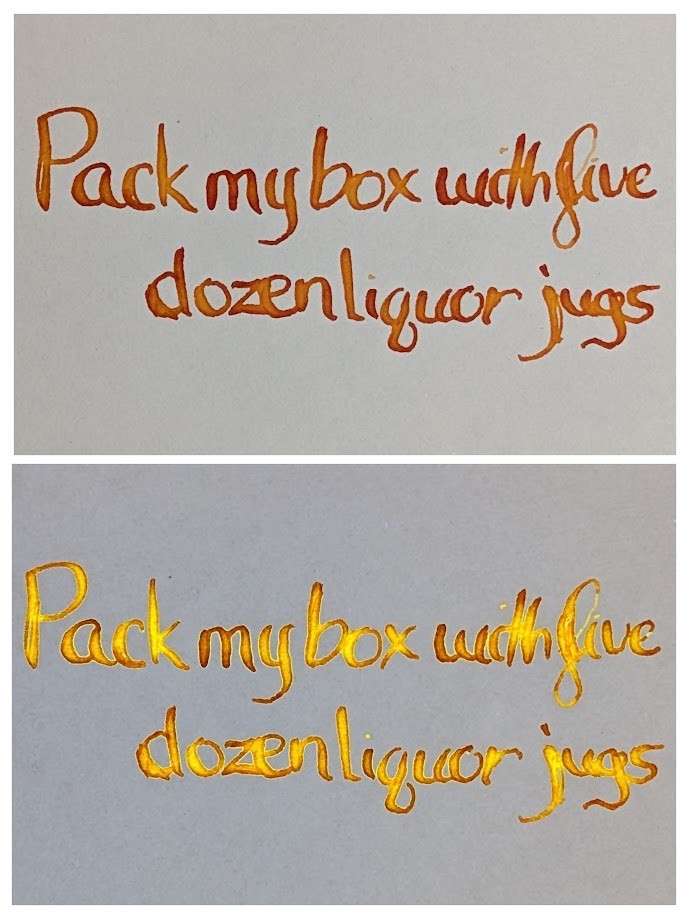 Pack my box with five
dozen liquor jugs
Pack my box with five
dozen liquor jugs